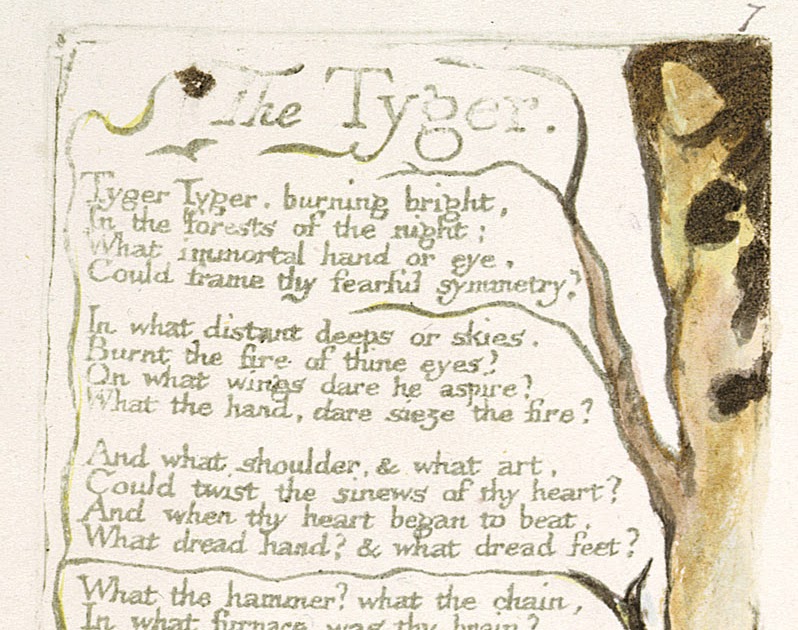 7
The Tyger.
Tyger Tyger. burning bright,
In the forests of the night;
What immortal hand or eye,
Could frame thy fearful symmetry?
In what distant deeps or skies.
Burnt the fire of thine eyes?
On what wings dare he aspire?
What the hand, dare sieze the fire?
And what shoulder, & what art,
Could twist the sinews of thy heart?
And when thy heart began to beat,
What dread hand? & what dread feet?
What the hammer? what the chain,
In what furnace was thy brain?